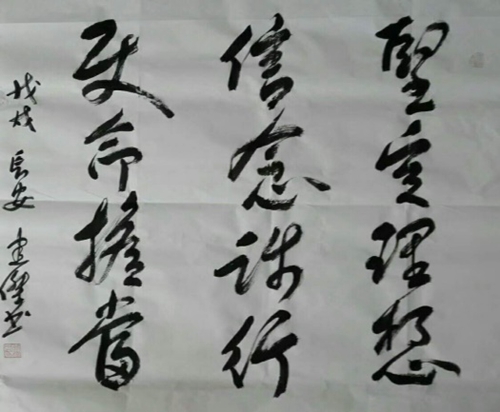 堅定理想
信念踐行
使命擔當
戊戌 長安 書